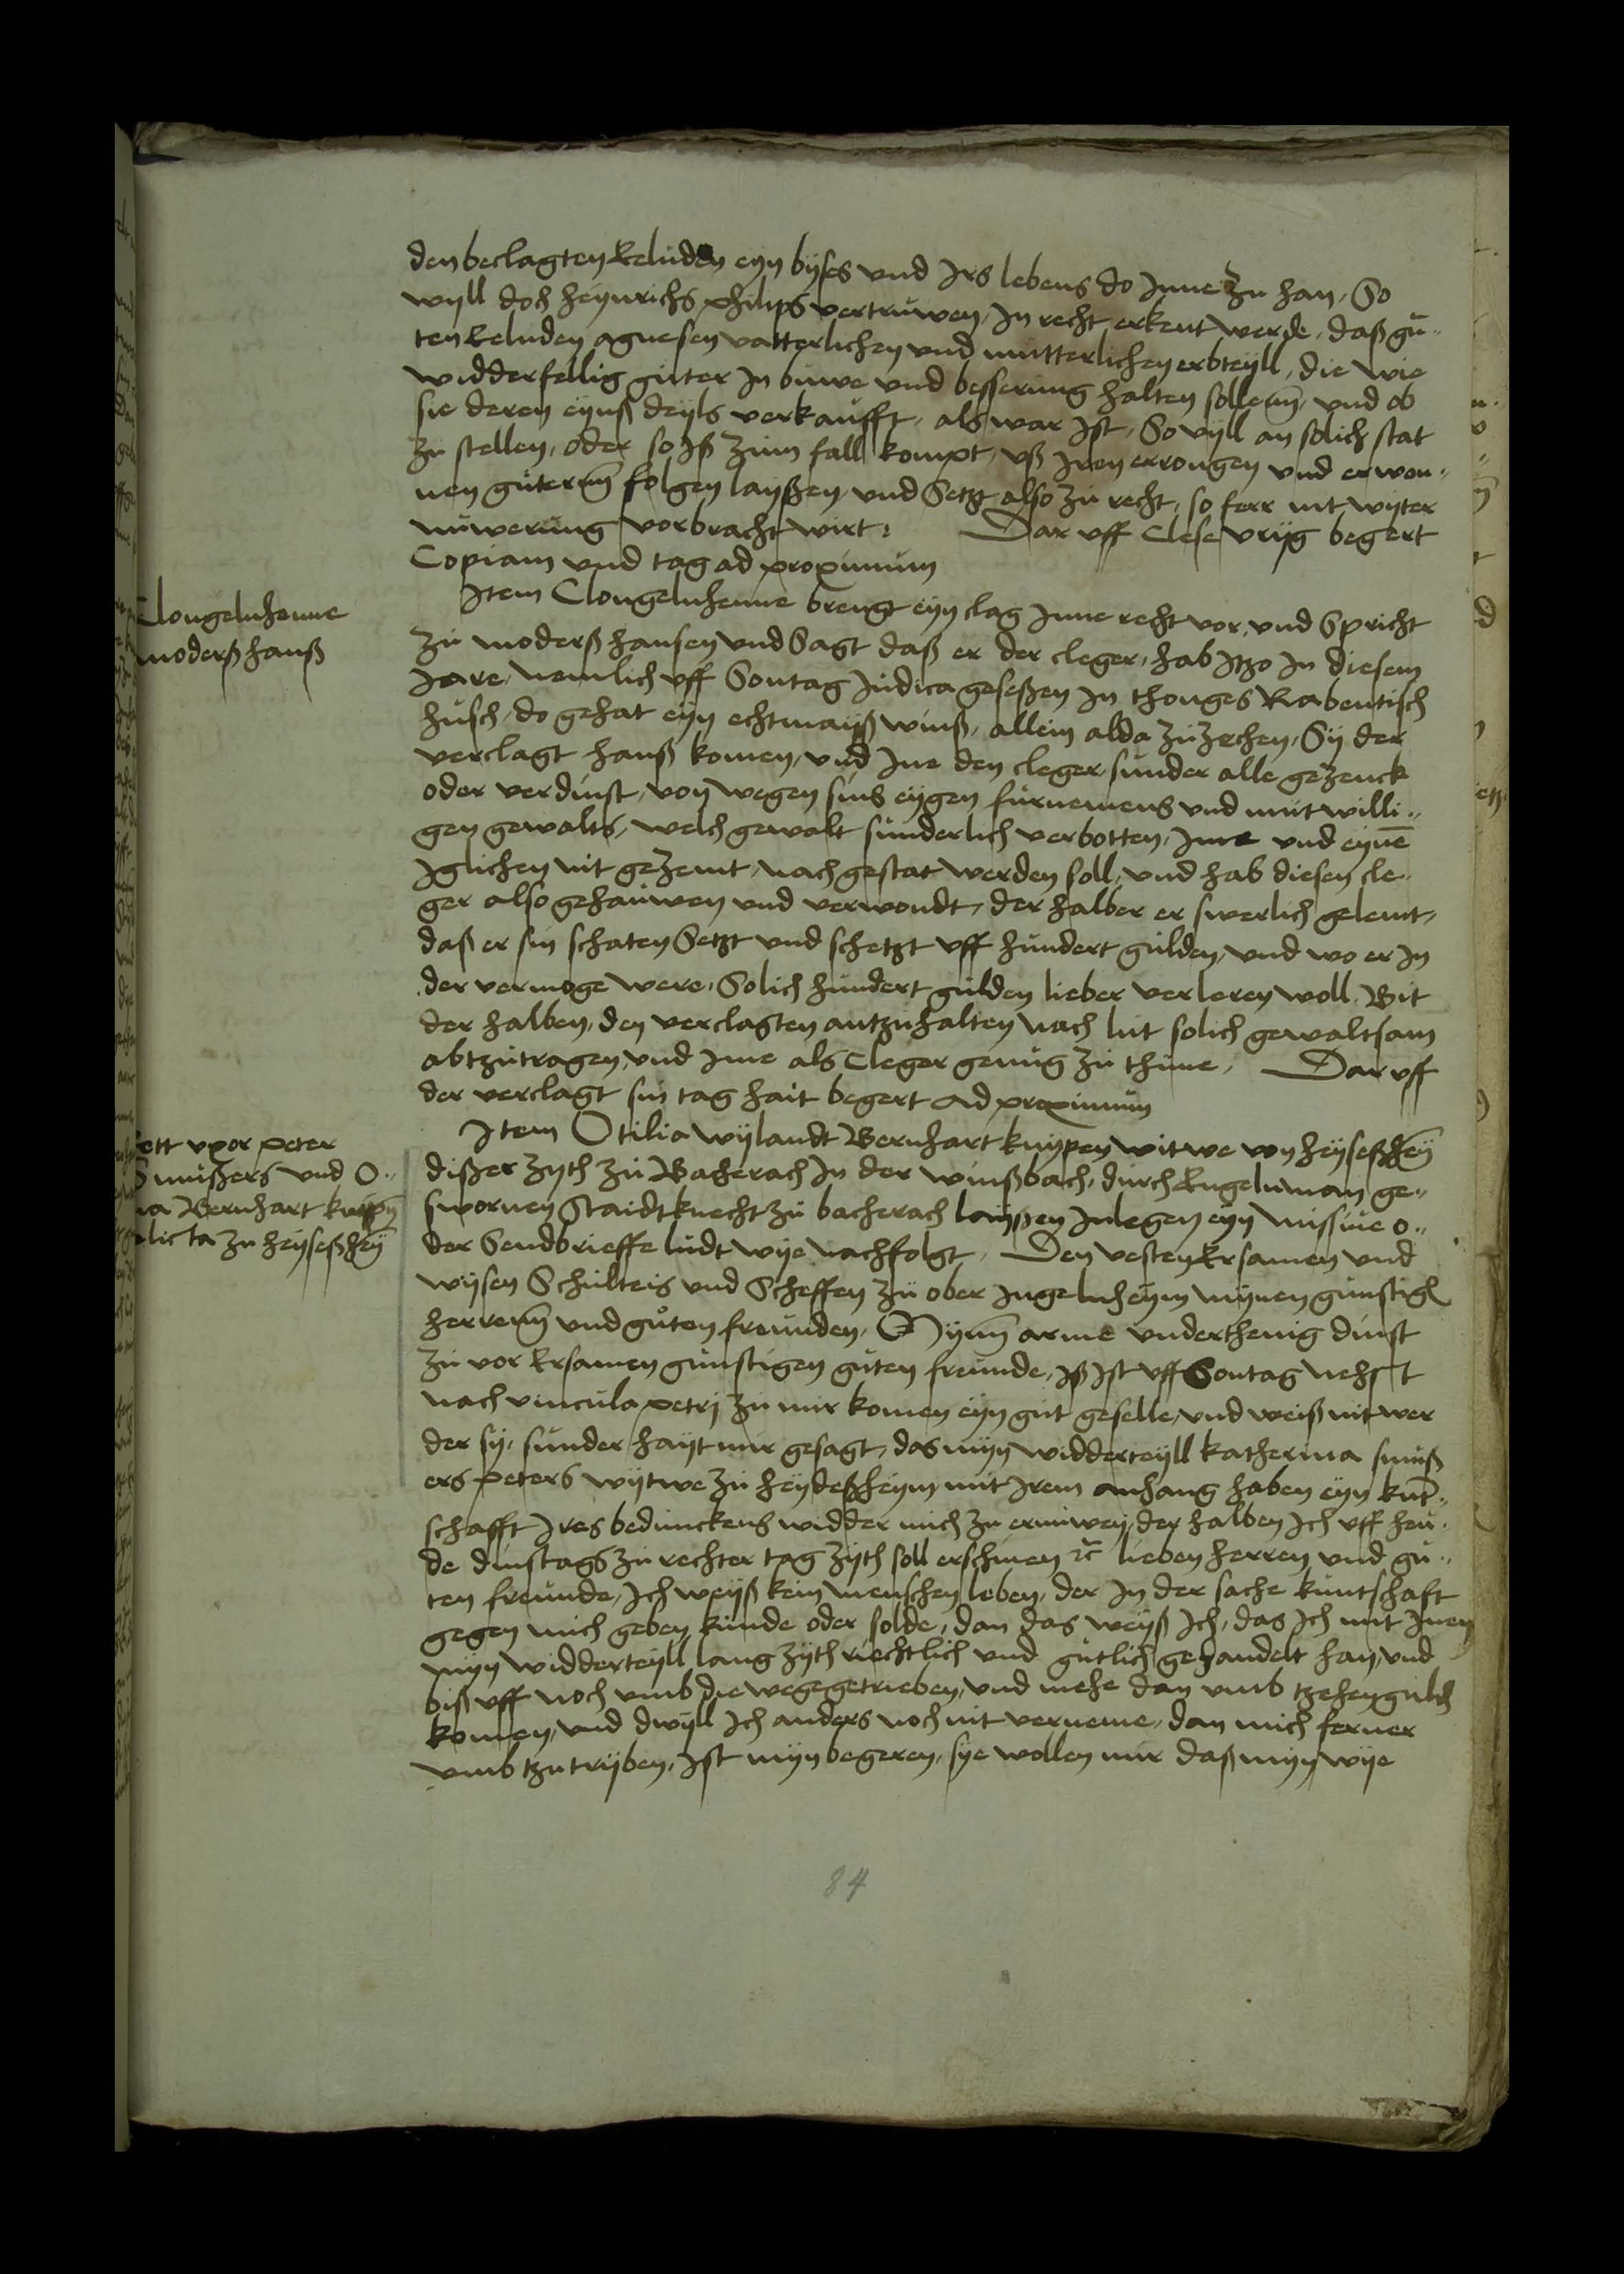 den beclagten Eeluden eyn byses und Irs lebens do Inne zu han, So
wyll doch heynrichs philips vertruwen, In recht erkent werde, daß gu„
ten Eeluden agnesen vatterlichen und mütterlichen erbteyll, die wie
widderfellig güter In buwe und besserung halten sollenn, und ob
sie deren eynß deyls verkaufft, als war Ist, So vyll an solich stat
zu stellen, oder so Iß zum fall kompt, uß Iren errongen und erwon„
nen güternn folgen layßen, und Setzt also zu recht, so ferr nit wyter
nuwerung vorbracht wirt: Dar uff Clese vrijg begert
Copiam und tag ad proximum
Clongelnhenne
moderß hanß
Item Clongelnhenne brengt eyn clag Inne recht vor, und Spricht
zu moderß hansen und Sagt daß er der cleger, hab Itzo In diesem
Jare, nemlich uff Sontag Judica geseßen In thonges Rabentisch
husch, do gehat eyn echtmayß winß, allein alda zu zechen, Sy der
verclagt hanß komen, und Ine den cleger, sunder alle gezenck
oder verdinst, von wegen sins eygen furnemens und mutwilli„
gen gewalts, welch gewalt sunderlich verbotten, Ime und eyne
Iglichen nit gezemt, nach gestat werden soll, und hab diesen cle„
ger also gehauwen und verwondt, der halber er swerlich gelemt,
daß er sin schaten Setzt und schetzt uff hundert gulden, und wo er In
der vermoge were, Solich hundert gulden lieber verleren woll. Bit
der halben, den verclagten antzuhalten nach lut solich gewaltsam
abtzutragen, und Ime als Cleger genug zu thune, Dar uff
der verclagt sin tag hait begert Ad proximum
ett uxor peter
Smußers und O„
a Bernhart knypen
licta zu heyseßheym
Item Otilia wylandt Bernhart knypen witwe von heyseßheym
dißer zyth zu Bacherach In der winßbach, durch Engelnman ge„
swornen Staidtknecht zu bacherach layßen Inlegen eyn missive o„
der Sendbrieffe ludt wye nachfolgt, Den vesten Ersamen und
wysen Schulteis und Scheffen zu ober Ingelnheym mynen gunstigen
herrenn und guten freunden, Mynn arme underthenig dinst
zu vor Ersamen gunstigen guten freunde, Iß Ist uff Sontag nehst
nach vincula petrj zu mir komen eyn gut geselle, und weiß nit wer
der sy, sunder hayt mir gesagt, das myn widderteyll katherina smuß
ers peters wytwe zu heydeßheym mit Irem anhang haben eyn kunt„
schafft Ires beduncken widder mich zu ernuwen, der halben Ich uff heu„
de dinstags zu rechter tag zyth soll erschinen &c lieben herren und gu„
ten freunde, Ich weyß kein menschen leben, der In der sache kuntschaft
gegen mich geben kunde oder solde, dan das weyß Ich, das Ich mit Inen
myn widderteyll lang zyth rechtlich und gutlich gehandelt han, und
biß uff noch umb die wege getrieben, und mehe dan umb tzehen gulden
komen, und dwyll Ich anders noch nit verneme, dan mich ferner
umb tzu tryben, Ist myn begeren, sye wollen mir daß myn wye
84